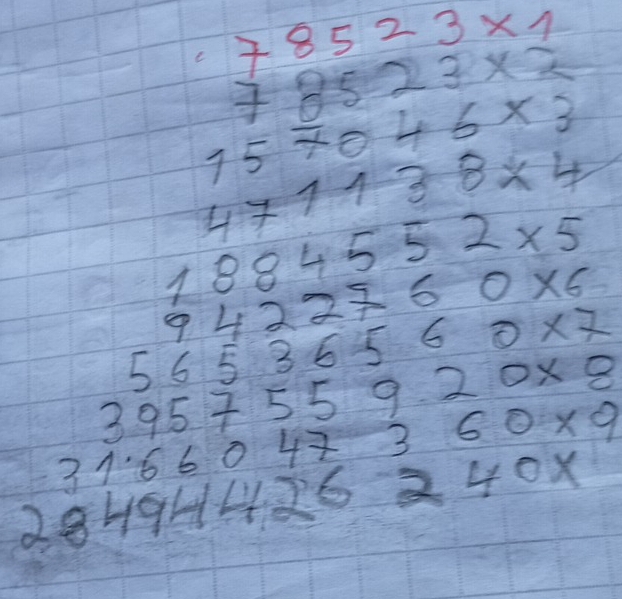 78523x1
78523x2
157046x3
471138x4
1884552x5
9422760x6
56536560x7
395755920x8
31660473 60x9
28494426240x